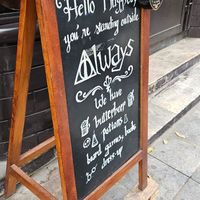 Hello Muggles
you're standing outside
Always
We have
butterbeer
potions
board games, books
dress-up